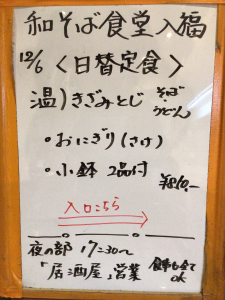 和そば食堂入福
12/6 〈日替定食〉
温)きざみとじ そば・うどん
・おにぎり(さけ)
・小鉢 2品付 ¥810.-
入口こちら
夜の部 17:30〜
「居酒屋」営業 食事も全てOK